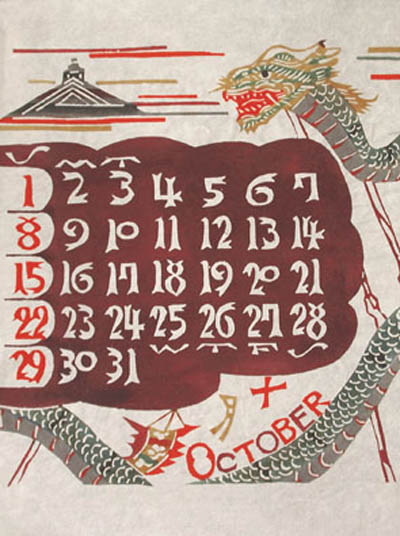 S M T
1 2 3 4 5 6 7
8 9 10 11 12 13 14
15 16 17 18 19 20 21
22 23 24 25 26 27 28
29 30 31 W T F S
十月
OCTOBER